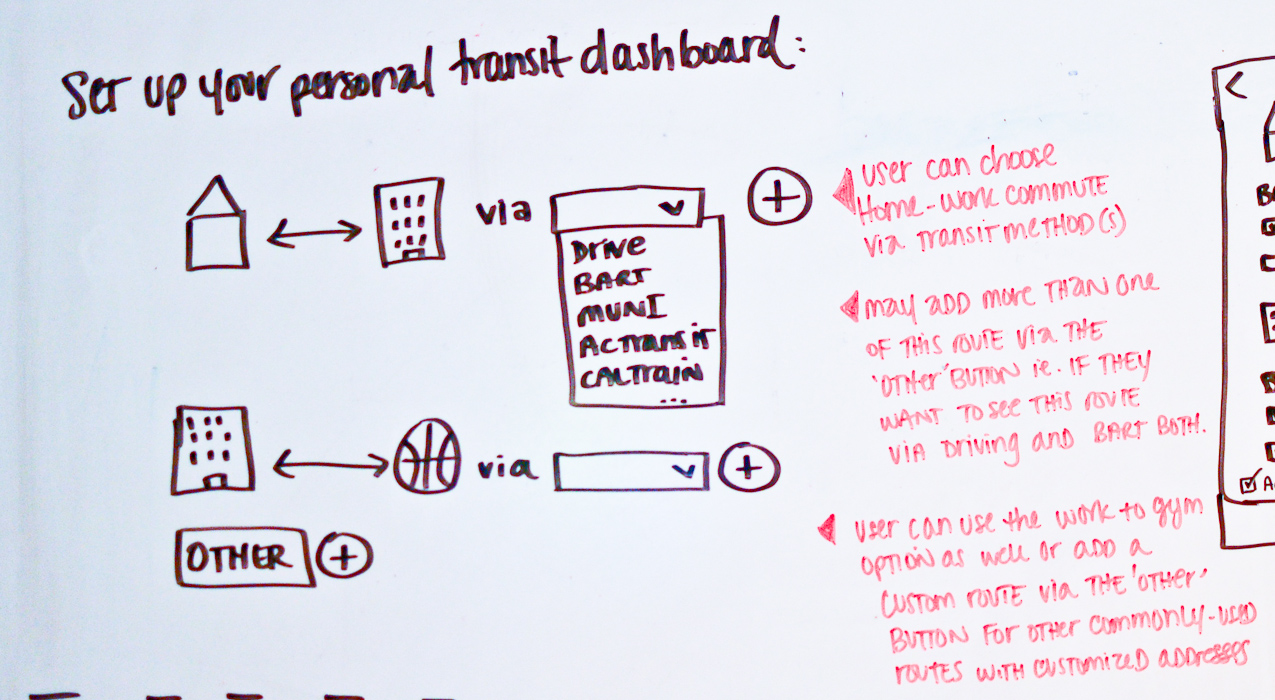 Set up your personal transit dashboard:
via
DRIVE
BART
MUNI
ACTransit
CALTRAIN
...
User can choose
Home-work commute
via transit method(s)
may add more than one
of this route via the
'other' button ie. if they
want to see this route
via driving and BART both.
via
OTHER
User can use the work to gym
option as well or add a
custom route via the 'other'
button for other commonly-used
routes with customized addresses